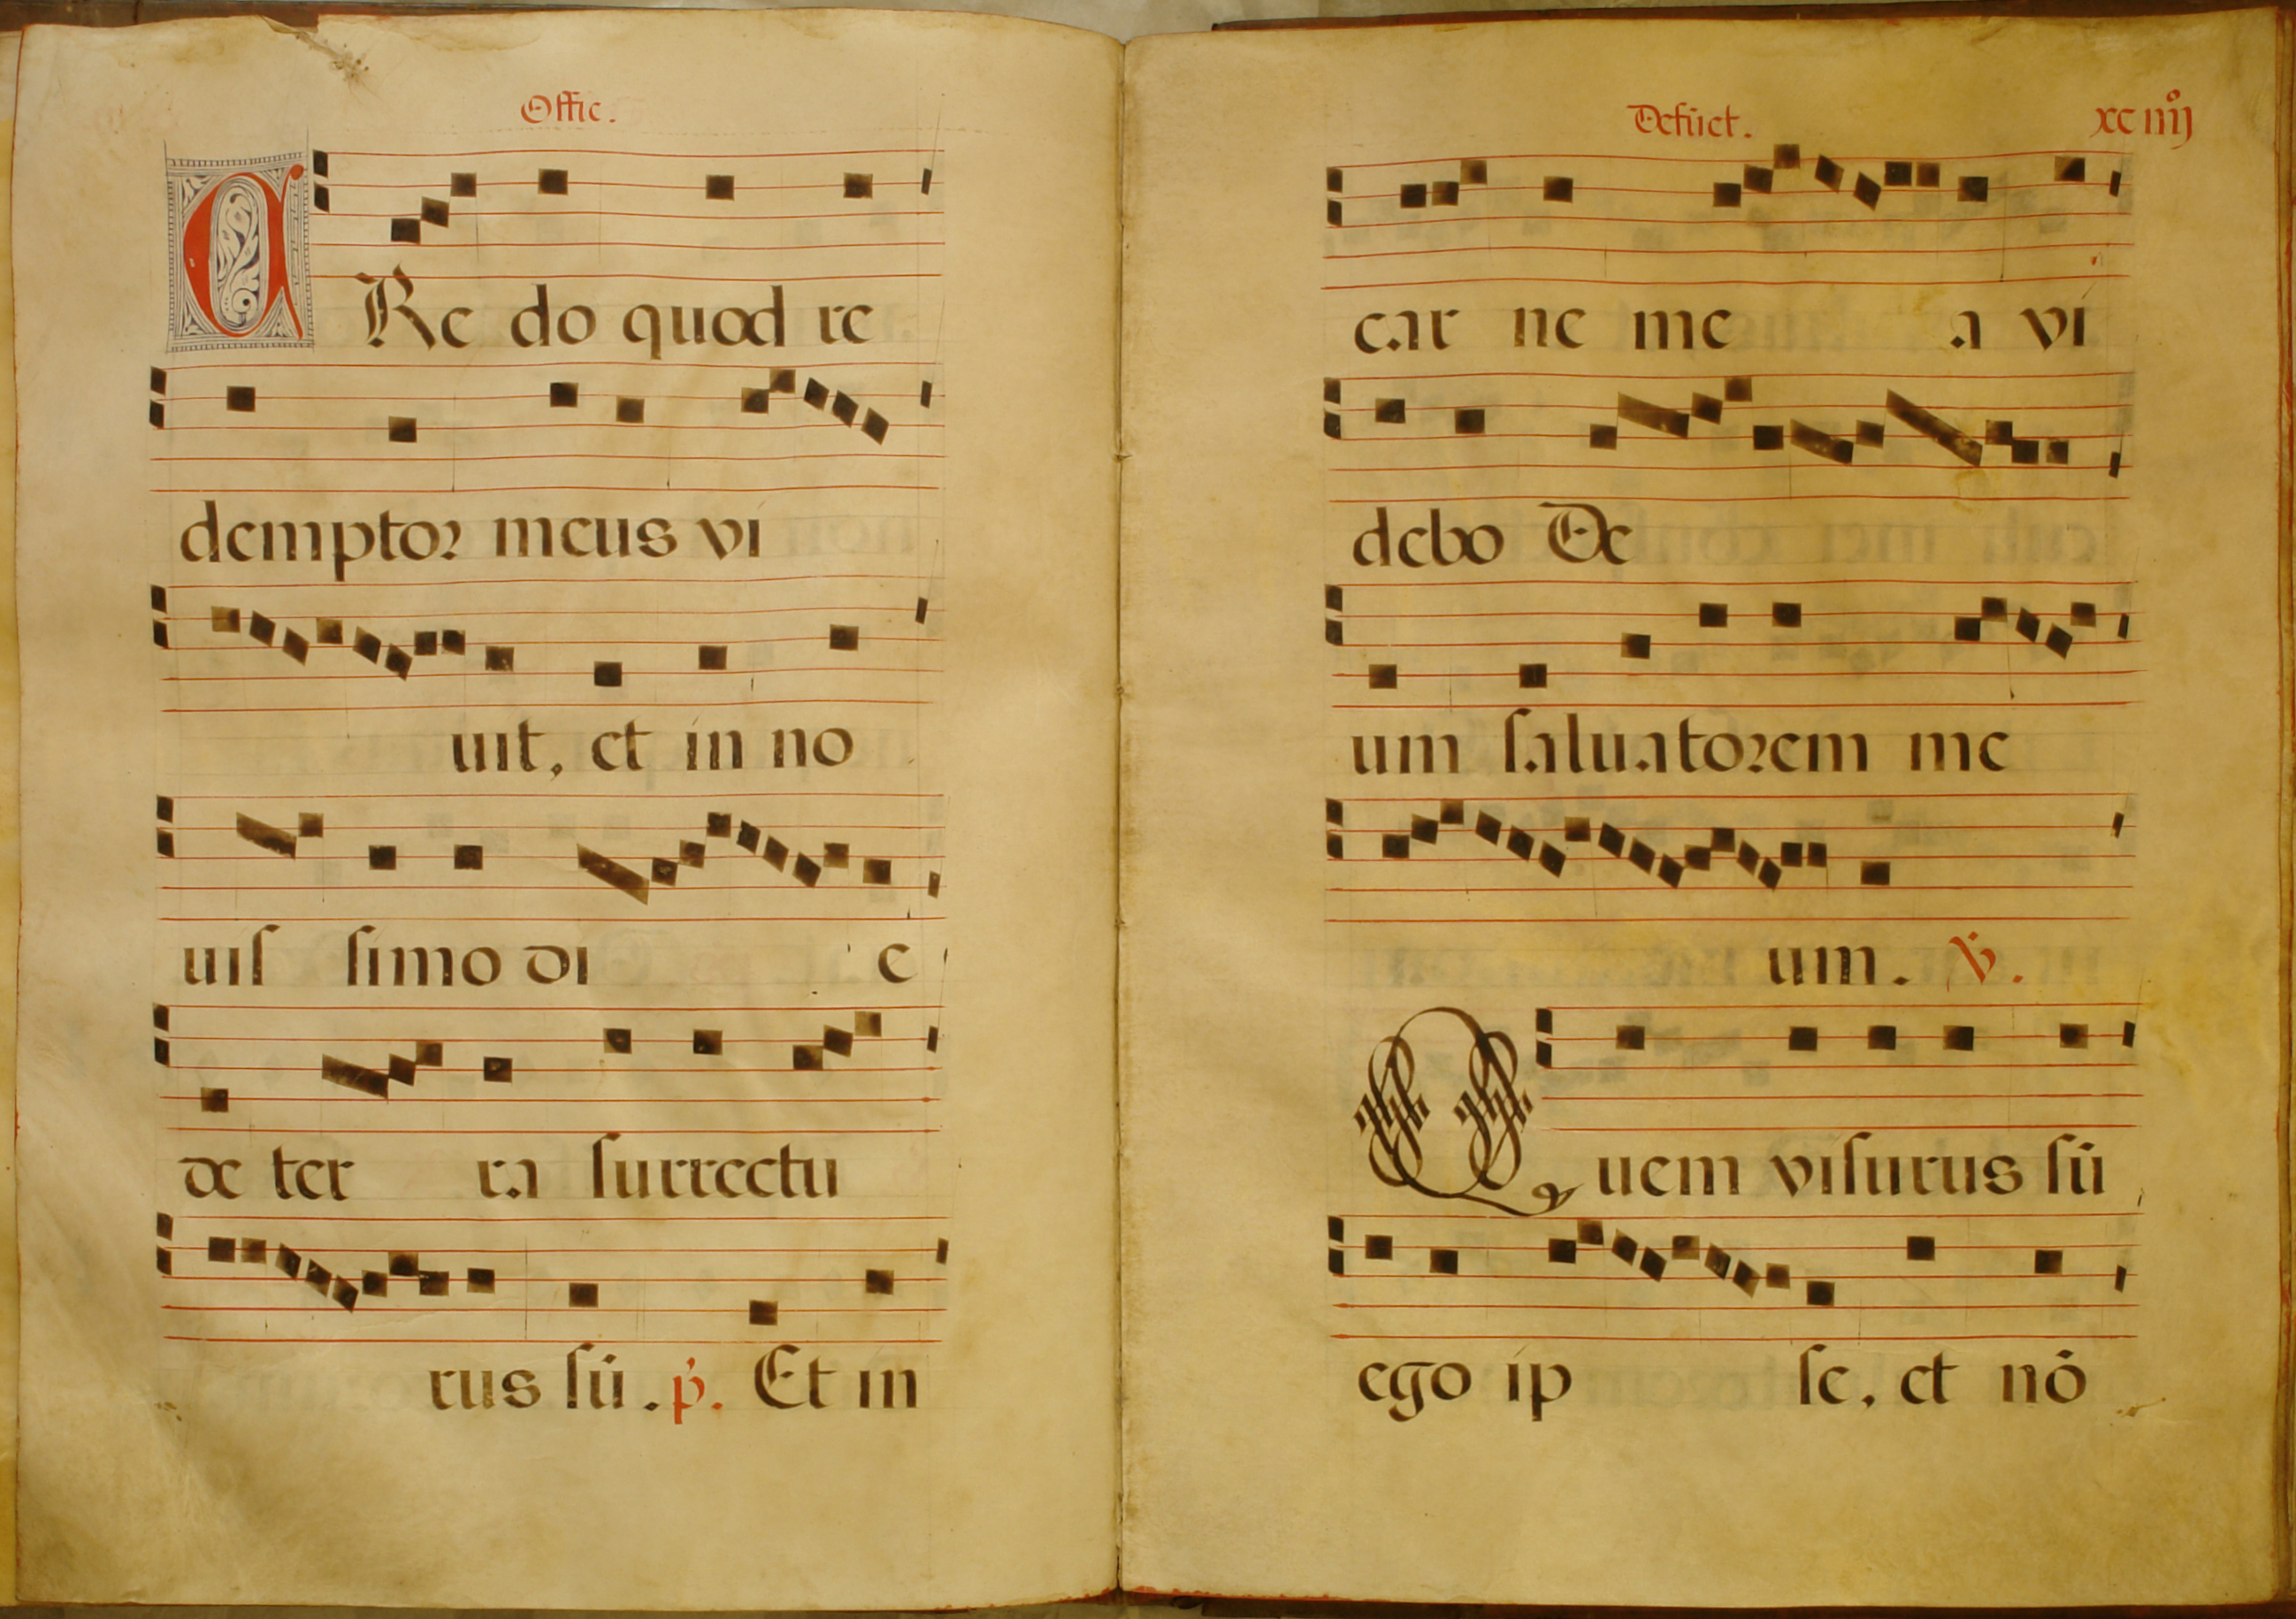 Offic.
CRe do quod re
demptor meus vi
uit, et in no
uiſ ſimo di e
de ter ra ſurrectu
rus ſū. p̄. Et in
Defūct. xciiijº
car ne me a vi
debo De
um ſaluatorem me
um. ℣.
Quem viſurus ſū
ego ip ſe, et nō